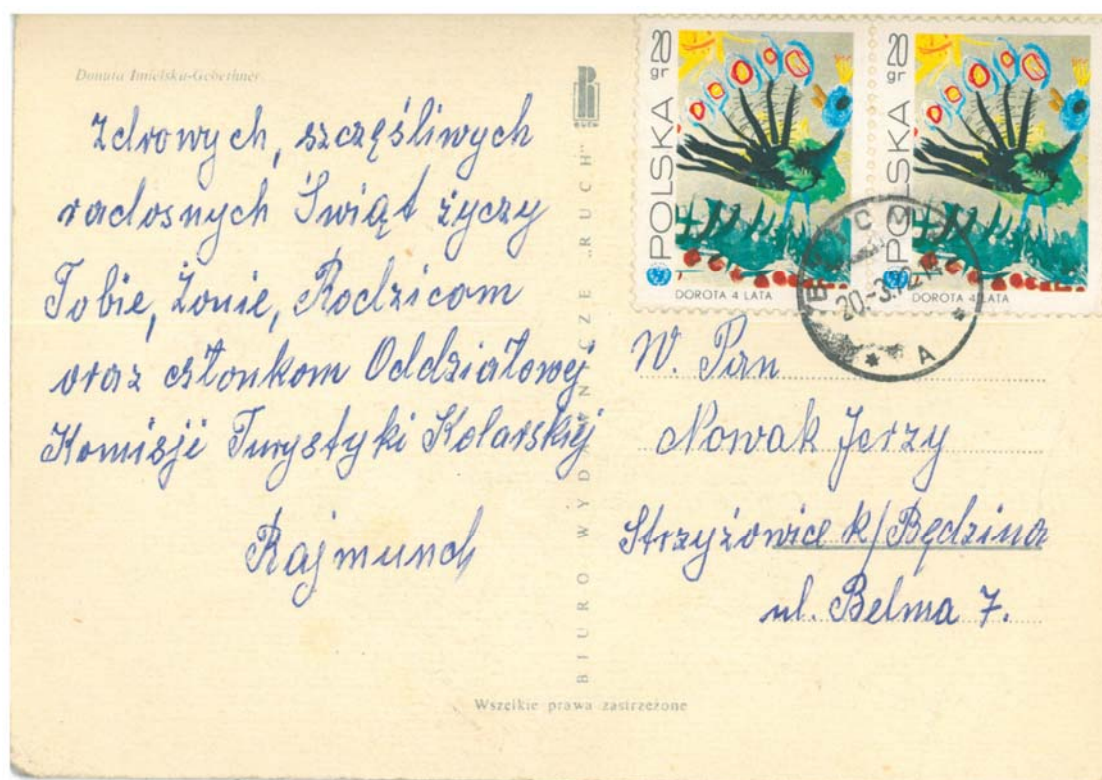 Danuta Imielska-Gebethner
Zdrowych, szczęśliwych
radosnych Świąt życzy
Tobie, Żonie, Rodzicom
oraz członkom Oddziałowej
Komisji Turystyki Kolarskiej
Rajmund
BIURO WYDAWNICZE „RUCH"
RUCH
Wszelkie prawa zastrzeżone
20 gr
POLSKA
DOROTA 4 LATA
20 gr
POLSKA
DOROTA 4 LATA
20.-3.
A
W. Pan
Nowak Jerzy
Strzyżowice k/Będzina
ul. Belma 7.